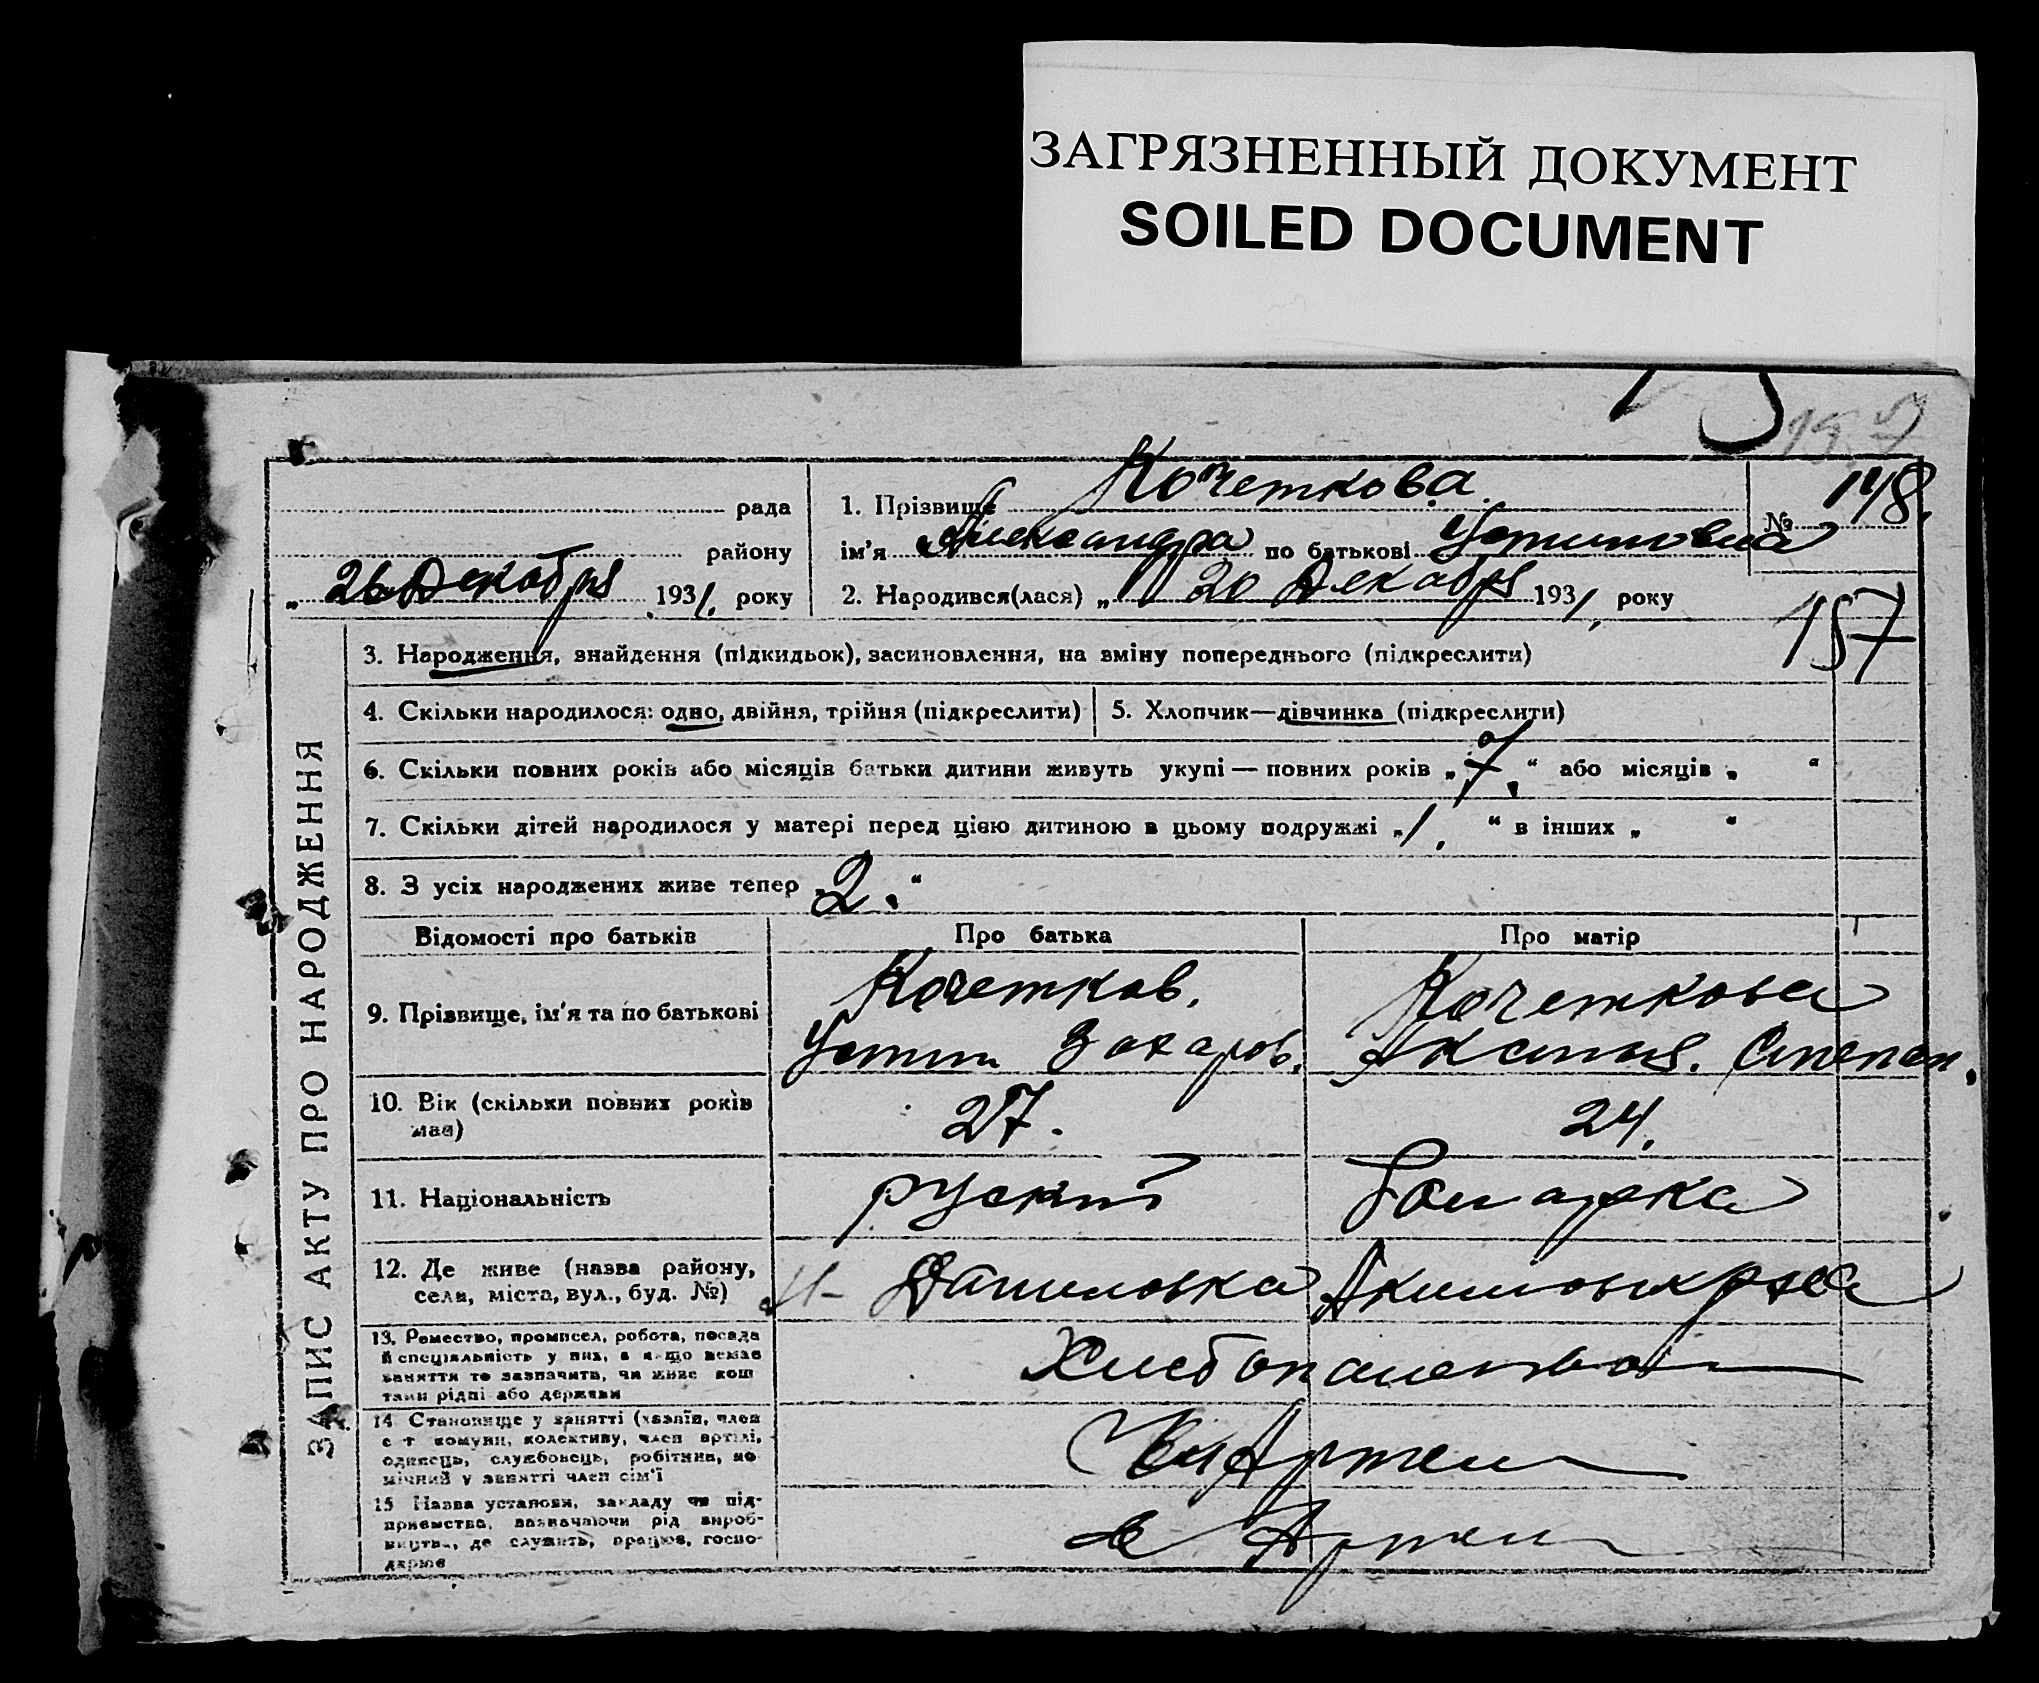 ЗАГРЯЗНЕННЫЙ ДОКУМЕНТ
SOILED DOCUMENT
рада
району
„ 26 Декабря 1931. року
1. Прізвище Кочеткова.
ім'я Александра по батькові Устиновна
№ 148.
2. Народився(лася) „ 20 Декабря 1931, року
157
ЗАПИС АКТУ ПРО НАРОДЖЕННЯ
3. Народження, знайдення (підкидьок), засиновлення, на зміну попереднього (підкреслити)
4. Скільки народилося: одно, двійня, трійня (підкреслити)
5. Хлопчик—дівчинка (підкреслити)
6. Скільки повних років або місяців батьки дитини живуть укупі — повних років „ 7. “ або місяців „ “
7. Скільки дітей народилося у матері перед цією дитиною в цьому подружжі „ 1. “ в інших „ “
8. З усіх народжених живе тепер „ 2. “
Відомості про батьків
Про батька
Про матір
9. Прізвище, ім'я та по батькові
Кочетков.
Устин Захаров.
Кочеткова
Аксинья. Степан.
10. Вік (скільки повних років
має)
27.
24.
11. Національність
руский
Болгарка
12. Де живе (назва району,
села, міста, вул., буд. №)
Даниловка Акимовск р-на
13. Ремество, промисел, робота, посада
й спеціяльність у них, а якщо немає
заняття то зазначити, чи живе кош
тами рідні або держави
Хлебопашество
14 Становище у занятті (хазяїн, член
с-г комуни, колективу, член артілі,
одинець, службовець, робітник, по
мічний у занятті член сім'ї
Чл Артели
15 Назва установи, закладу чи під-
приємства, зазначаючи рід вироб-
ництва, де служить, працює, госпо-
дарює
в Артели